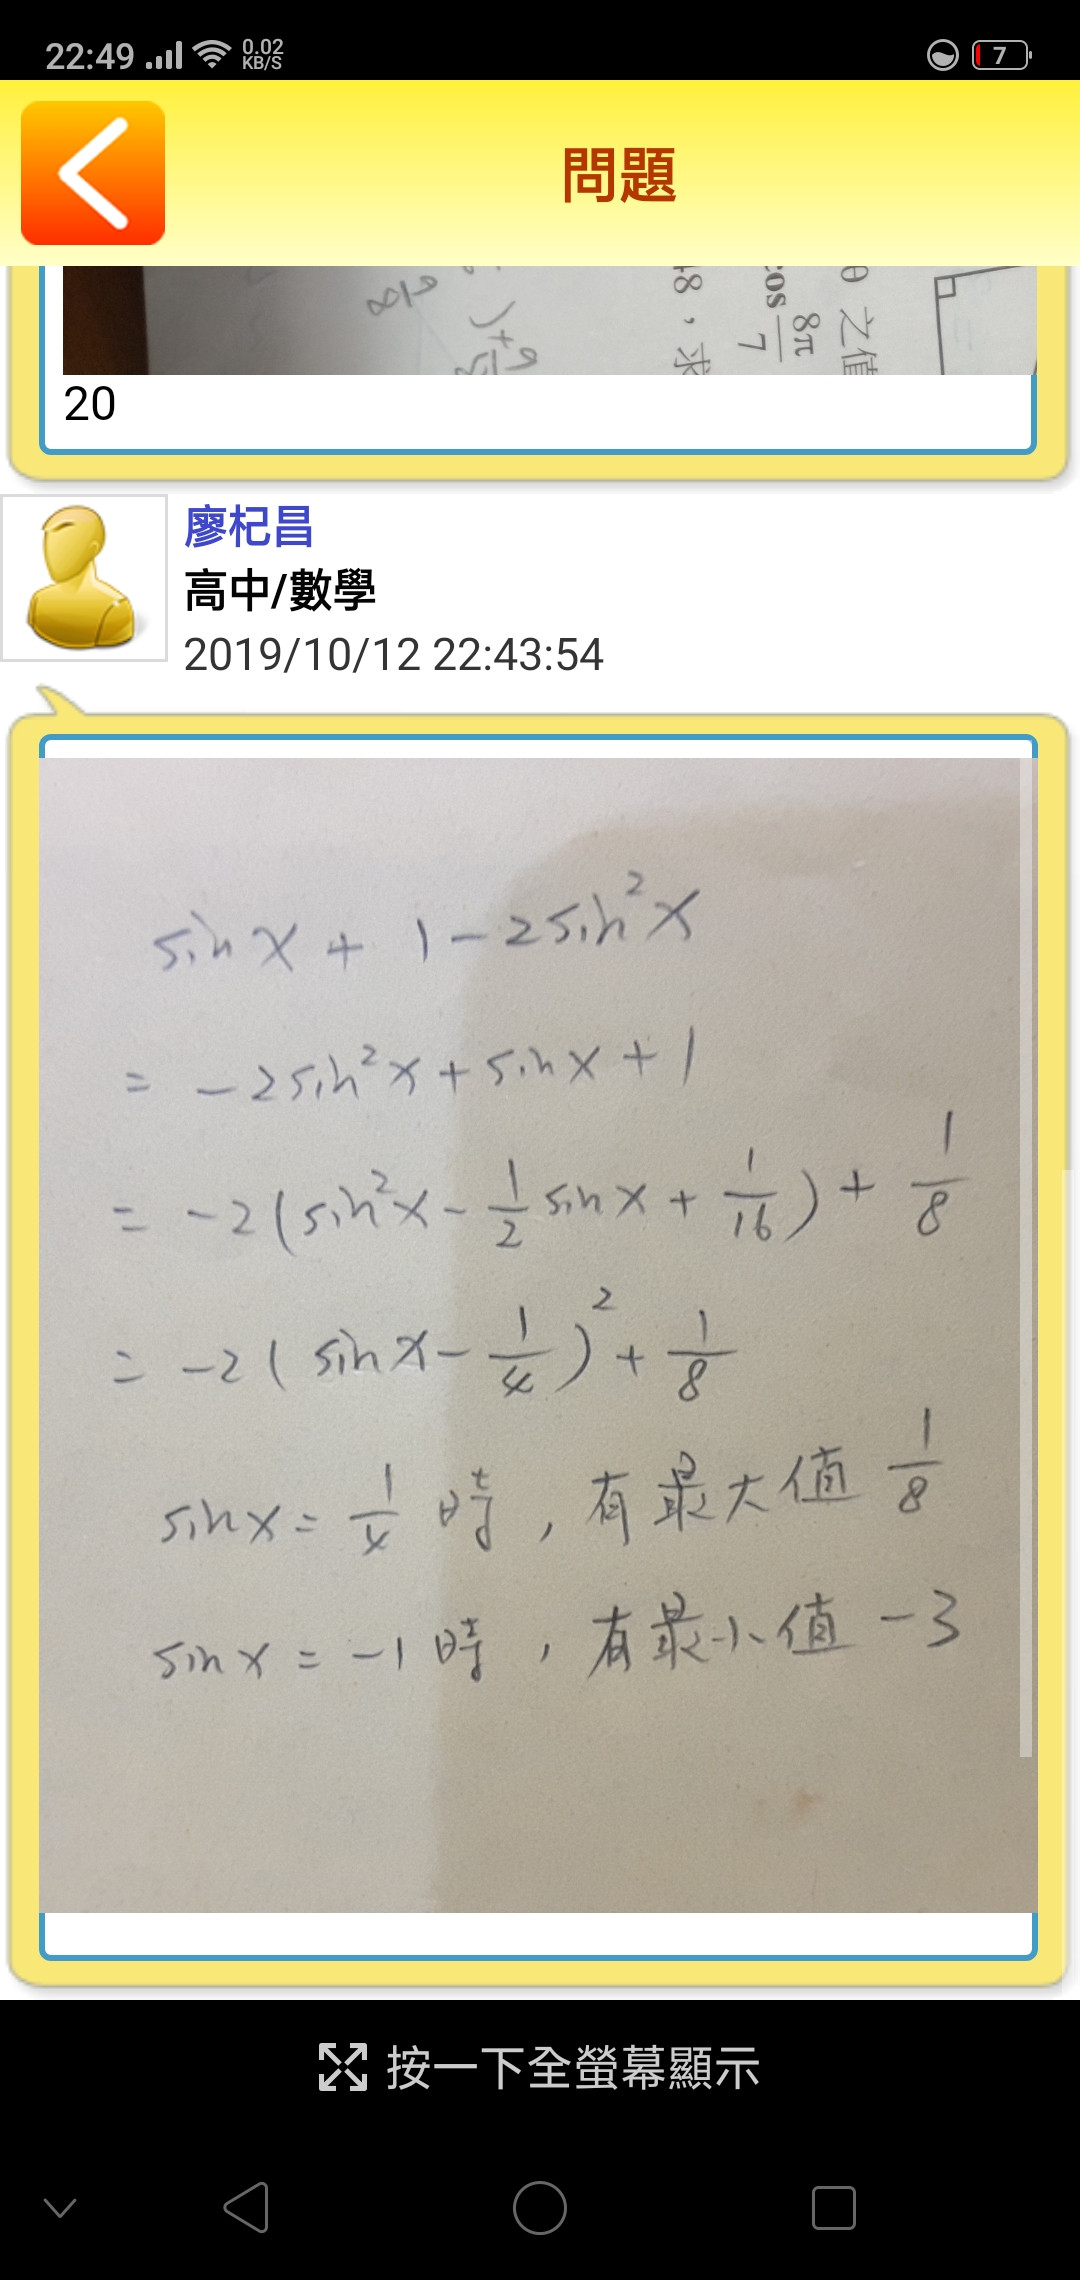 22:49 0.02 KB/S 7
問題
8
48，求
cos 8π/7
θ 之值
20
廖杞昌
高中/數學
2019/10/12 22:43:54
sin x + 1 - 2 sin²x
= -2 sin²x + sin x + 1
= -2(sin²x - 1/2 sin x + 1/16) + 1/8
= -2(sin x - 1/4)² + 1/8
sin x = 1/4 時，有最大值 1/8
sin x = -1 時，有最小值 -3
按一下全螢幕顯示